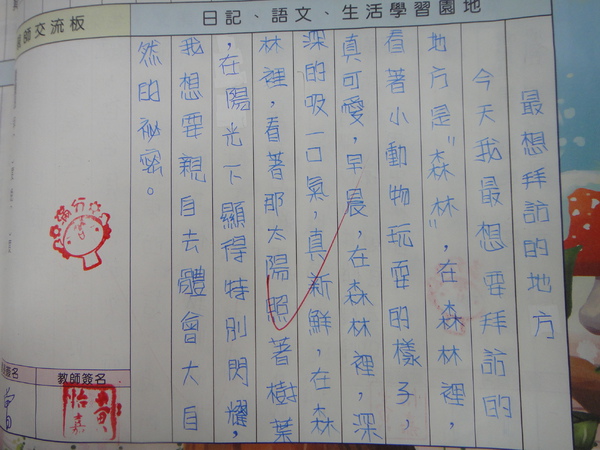 日記、語文、生活學習園地
師交流板
最想拜訪的地方
今天我最想要拜訪的
地方是"森林",在森林裡,
看著小動物玩耍的樣子,
真可愛,早晨,在森林裡,深
深的吸一口氣,真新鮮,在森
林裡,看著那太陽照著樹葉
,在陽光下顯得特別閃耀,
我想要親自去體會大自
然的祕密。
滿分
教師簽名
簽名
黃怡嘉